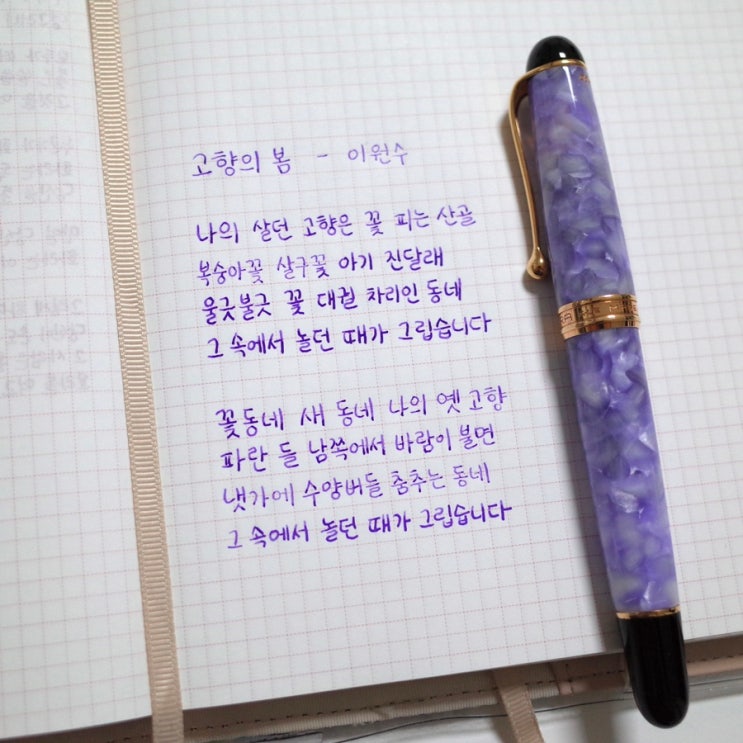 고향의 봄 - 이원수
나의 살던 고향은 꽃 피는 산골
복숭아꽃 살구꽃 아기 진달래
울긋불긋 꽃 대궐 차리인 동네
그 속에서 놀던 때가 그립습니다
꽃동네 새 동네 나의 옛 고향
파란 들 남쪽에서 바람이 불면
냇가에 수양버들 춤추는 동네
그 속에서 놀던 때가 그립습니다